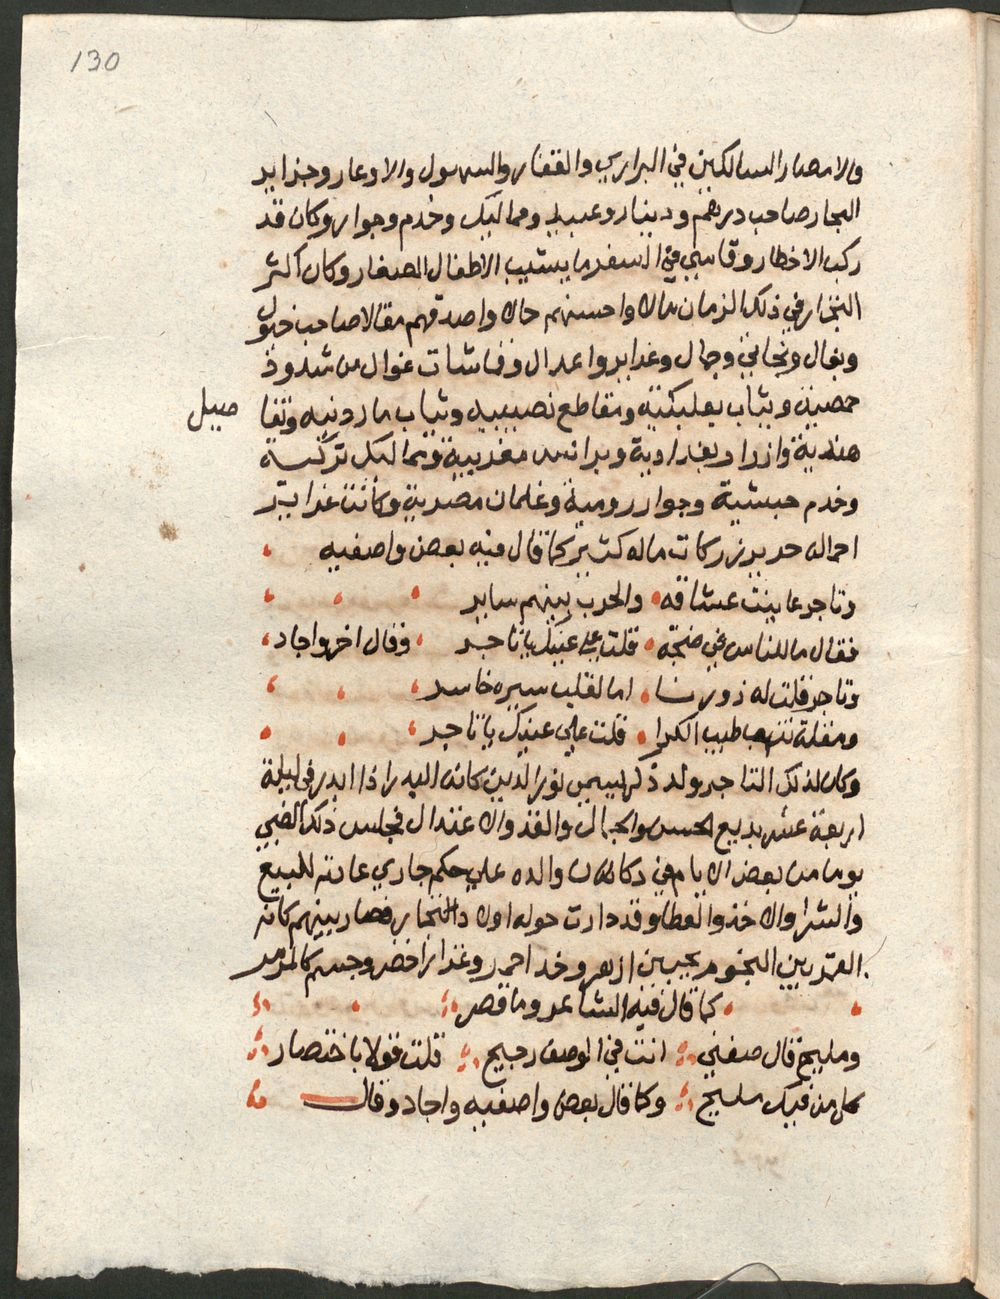 130
والامصار السالكين في البراري والقفار والسهول والاوعار وجزاير
البحار صاحب درهم ودينار وعبيد ومماليك وخدم وجوار وكان قد
ركب الاخطار وقاسي في السفر ما يشيب الاطفال الصغار وكان اكثر
التجار في ذلك الزمان مالا واحسنهم حالا واصدقهم مقالا صاحب خيول
وبغال وبخاتي وجمال وغراير واعدال وقماشات غوال من شدود
حمصية وثياب بعلبكية ومقاطع نصيبيه وثياب مارد ينيه وتفا
صيل
هندية وازرار بغدادية وبرانس مغربية ومماليك تركية
وخدم حبشية وجوار رومية وغلمان مصرية وكانت غراير
احماله حرير زركات ماله كثير كما قال فيه بعض واصفيه
وتاجر عاينت عشاقه والحرب بينهم ساير
فقال ما للناس في ضجّه قلت على عينيك يا تاجر وقال اخر واجاد
وتاجر قلت له زورنا اما لقلب سيره خاسر
ومقلة تنهب طيب الكرا قلت علي عينيك يا تاجر
وكان لذلك التاجر ولد ذكر يسمى نور الدين كانه البدر اذا ابدر في ليلة
اربعة عشر بديع الحسن والجمال والقد والاعتدال فجلس ذلك الصبي
يوما من بعض الايام في دكان والده علي حكم جاري عادته للبيع
والشرا والاخذ والعطا وقد دارت حوله اولاد التجار فصار بينهم كانه
القمر بين النجوم بجبين ازهر وخد احمر وعذار اخضر وجسم كالمرمر
كما قال فيه الشاعر وما قصر
ومليح قال صفني انت في الوصف رجيح قلت قولا باختصار
كل من فيك مليح وكما قال بعض واصفيه واجاد وقال